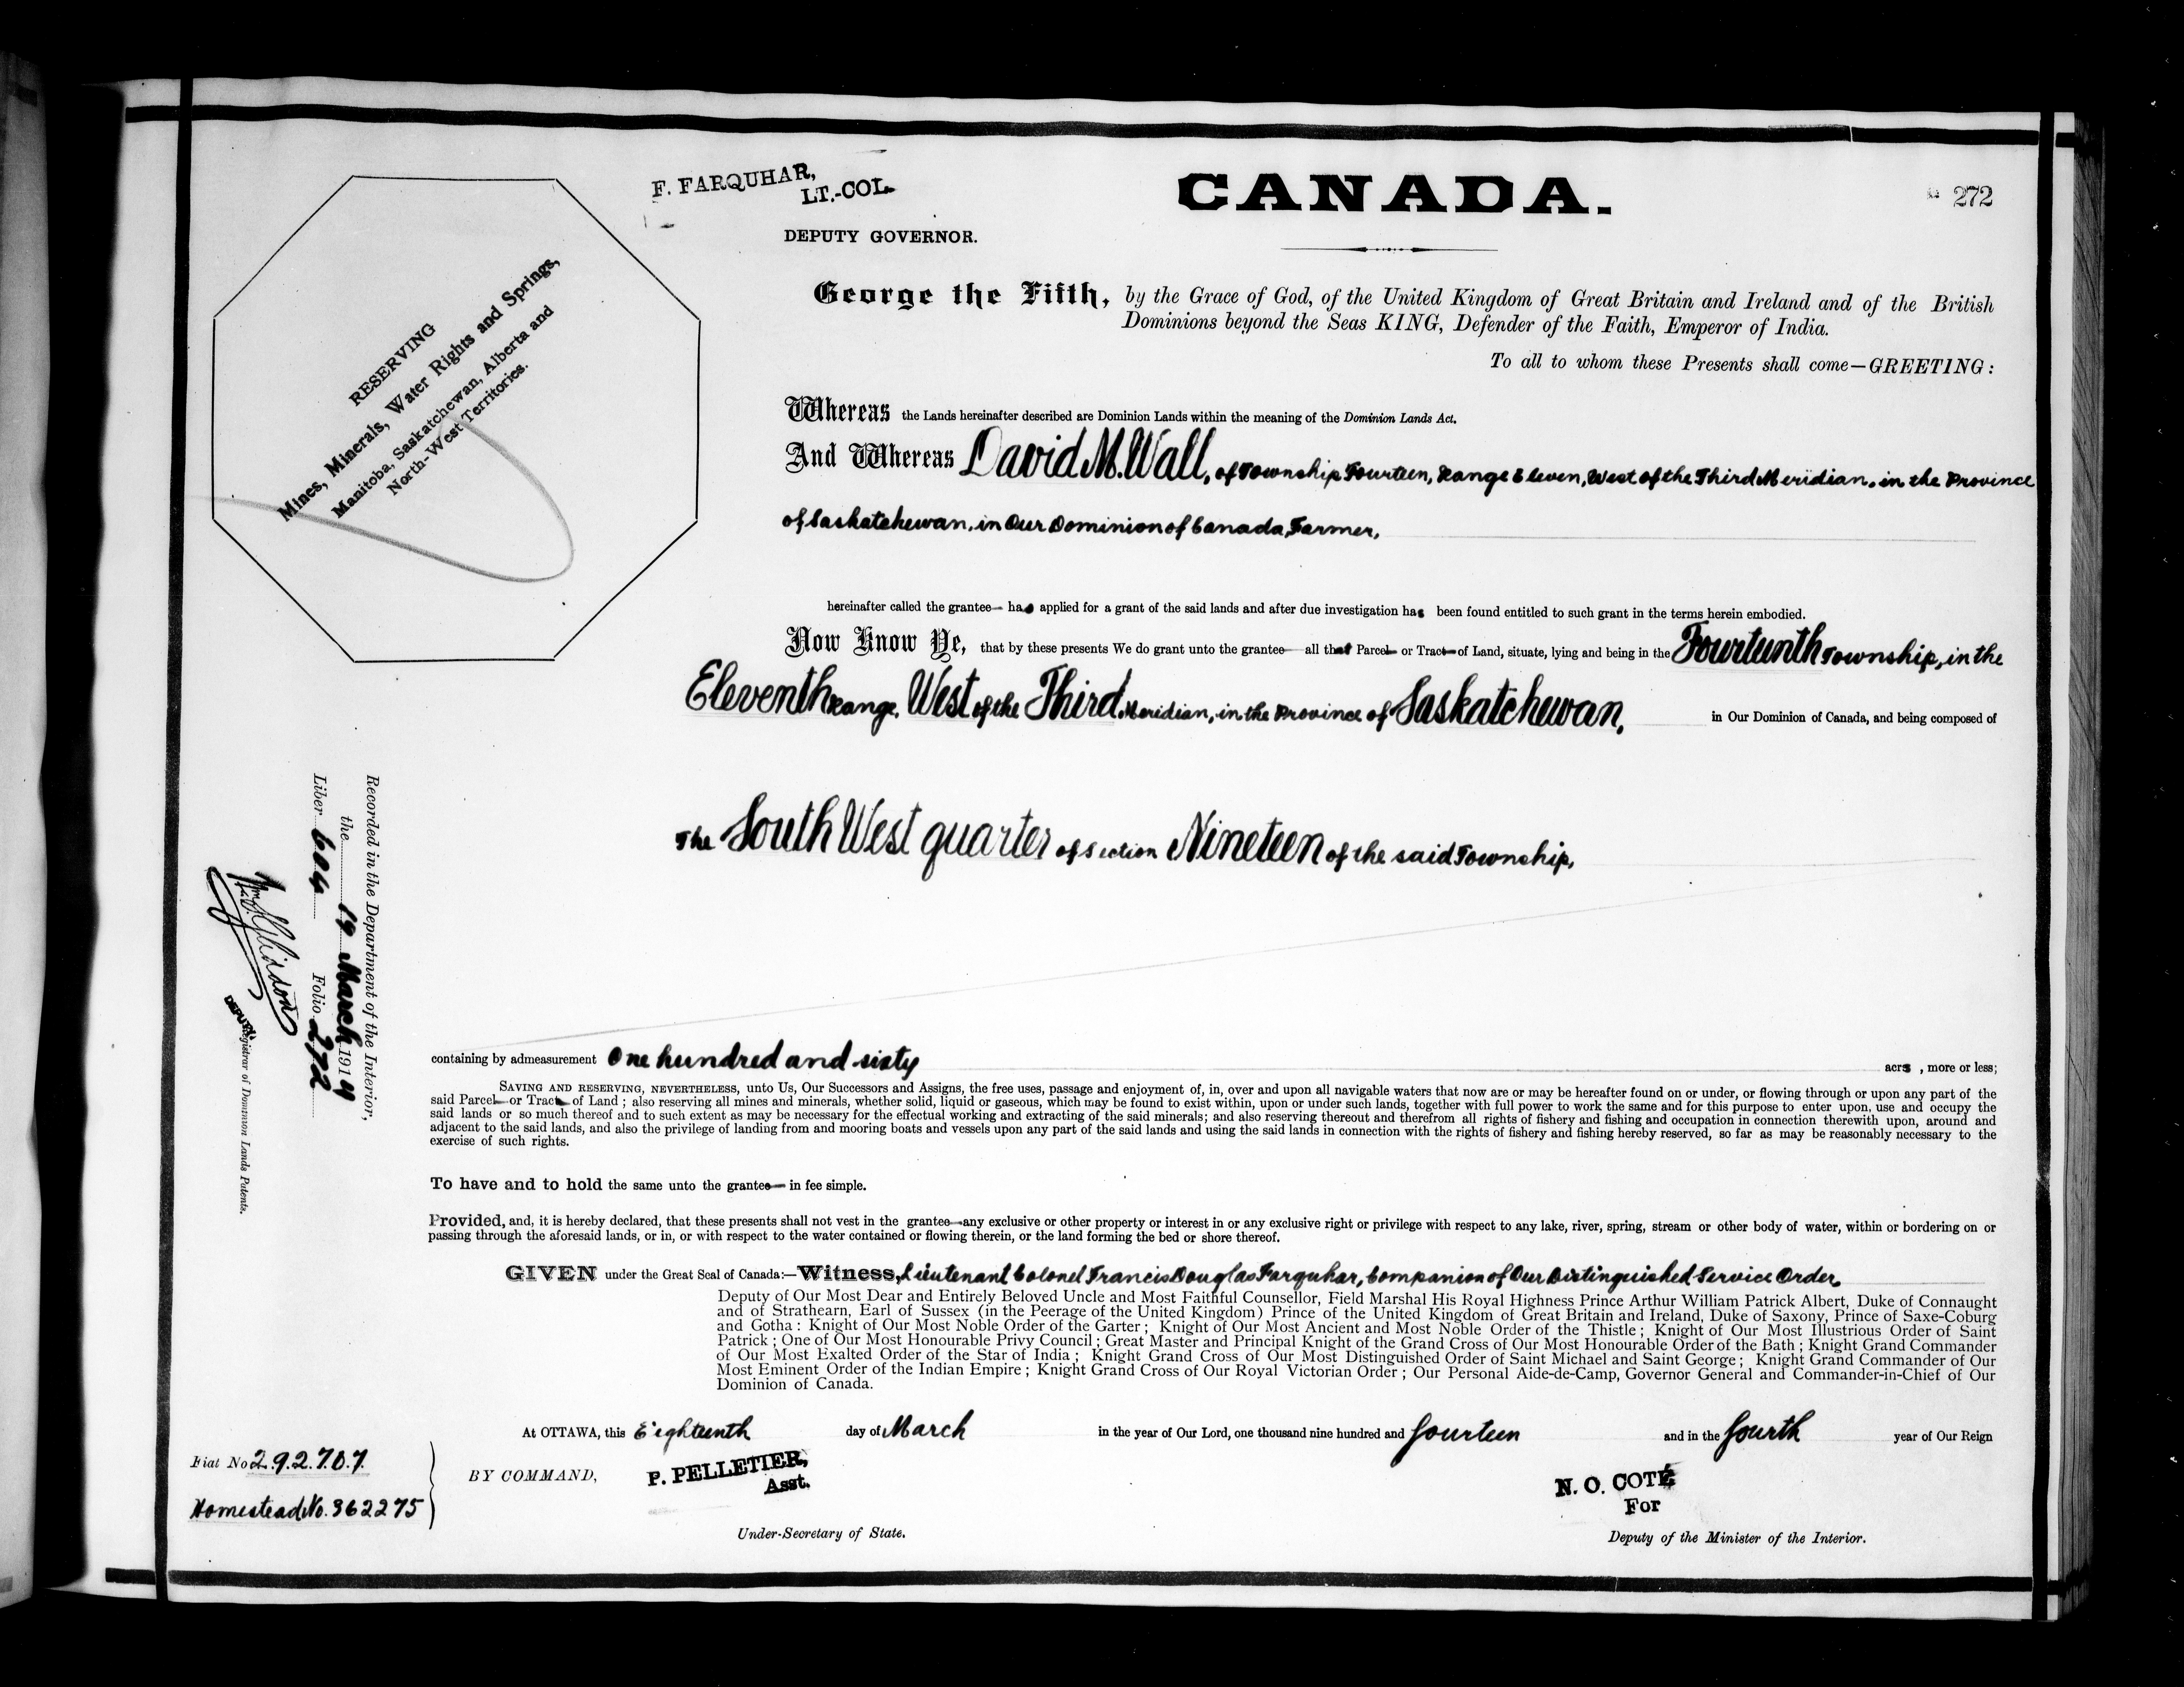 F. FARQUHAR,
LT.-COL.
DEPUTY GOVERNOR.
CANADA.
272
RESERVING
Mines, Minerals, Water Rights and Springs,
Manitoba, Saskatchewan, Alberta and
North-West Territories.
George the Fifth, by the Grace of God, of the United Kingdom of Great Britain and Ireland and of the British
Dominions beyond the Seas KING, Defender of the Faith, Emperor of India.
To all to whom these Presents shall come—GREETING:
Whereas the Lands hereinafter described are Dominion Lands within the meaning of the Dominion Lands Act.
And Whereas David M. Wall, of Township Fourteen, Range Eleven, West of the Third Meridian, in the Province
of Saskatchewan, in Our Dominion of Canada, Farmer,
hereinafter called the grantee has applied for a grant of the said lands and after due investigation has been found entitled to such grant in the terms herein embodied.
Now Know Ye, that by these presents We do grant unto the grantee all that Parcel or Tract of Land, situate, lying and being in the Fourteenth Township, in the
Eleventh Range, West of the Third Meridian, in the Province of Saskatchewan, in Our Dominion of Canada, and being composed of
The South West quarter of Section Nineteen of the said Township,
Recorded in the Department of the Interior,
the 19 March 1914
Liber 604 Folio 272
DEPUTY Registrar of Dominion Lands Patents.
containing by admeasurement One hundred and sixty acrs , more or less;
SAVING AND RESERVING, NEVERTHELESS, unto Us, Our Successors and Assigns, the free uses, passage and enjoyment of, in, over and upon all navigable waters that now are or may be hereafter found on or under, or flowing through or upon any part of the
said Parcel or Tract of Land ; also reserving all mines and minerals, whether solid, liquid or gaseous, which may be found to exist within, upon or under such lands, together with full power to work the same and for this purpose to enter upon, use and occupy the
said lands or so much thereof and to such extent as may be necessary for the effectual working and extracting of the said minerals; and also reserving thereout and therefrom all rights of fishery and fishing and occupation in connection therewith upon, around and
adjacent to the said lands, and also the privilege of landing from and mooring boats and vessels upon any part of the said lands and using the said lands in connection with the rights of fishery and fishing hereby reserved, so far as may be reasonably necessary to the
exercise of such rights.
To have and to hold the same unto the grantee in fee simple.
Provided, and, it is hereby declared, that these presents shall not vest in the grantee any exclusive or other property or interest in or any exclusive right or privilege with respect to any lake, river, spring, stream or other body of water, within or bordering on or
passing through the aforesaid lands, or in, or with respect to the water contained or flowing therein, or the land forming the bed or shore thereof.
GIVEN under the Great Seal of Canada:—Witness, Lieutenant Colonel Francis Douglas Farquhar, Companion of Our Distinguished Service Order,
Deputy of Our Most Dear and Entirely Beloved Uncle and Most Faithful Counsellor, Field Marshal His Royal Highness Prince Arthur William Patrick Albert, Duke of Connaught
and of Strathearn, Earl of Sussex (in the Peerage of the United Kingdom) Prince of the United Kingdom of Great Britain and Ireland, Duke of Saxony, Prince of Saxe-Coburg
and Gotha : Knight of Our Most Noble Order of the Garter ; Knight of Our Most Ancient and Most Noble Order of the Thistle ; Knight of Our Most Illustrious Order of Saint
Patrick ; One of Our Most Honourable Privy Council ; Great Master and Principal Knight of the Grand Cross of Our Most Honourable Order of the Bath ; Knight Grand Commander
of Our Most Exalted Order of the Star of India ; Knight Grand Cross of Our Most Distinguished Order of Saint Michael and Saint George ; Knight Grand Commander of Our
Most Eminent Order of the Indian Empire ; Knight Grand Cross of Our Royal Victorian Order ; Our Personal Aide-de-Camp, Governor General and Commander-in-Chief of Our
Dominion of Canada.
At OTTAWA, this Eighteenth day of March in the year of Our Lord, one thousand nine hundred and fourteen and in the fourth year of Our Reign
Fiat No 292707.
Homestead No. 362275
BY COMMAND,
P. PELLETIER,
Asst.
Under-Secretary of State.
N. O. COTÉ
For
Deputy of the Minister of the Interior.